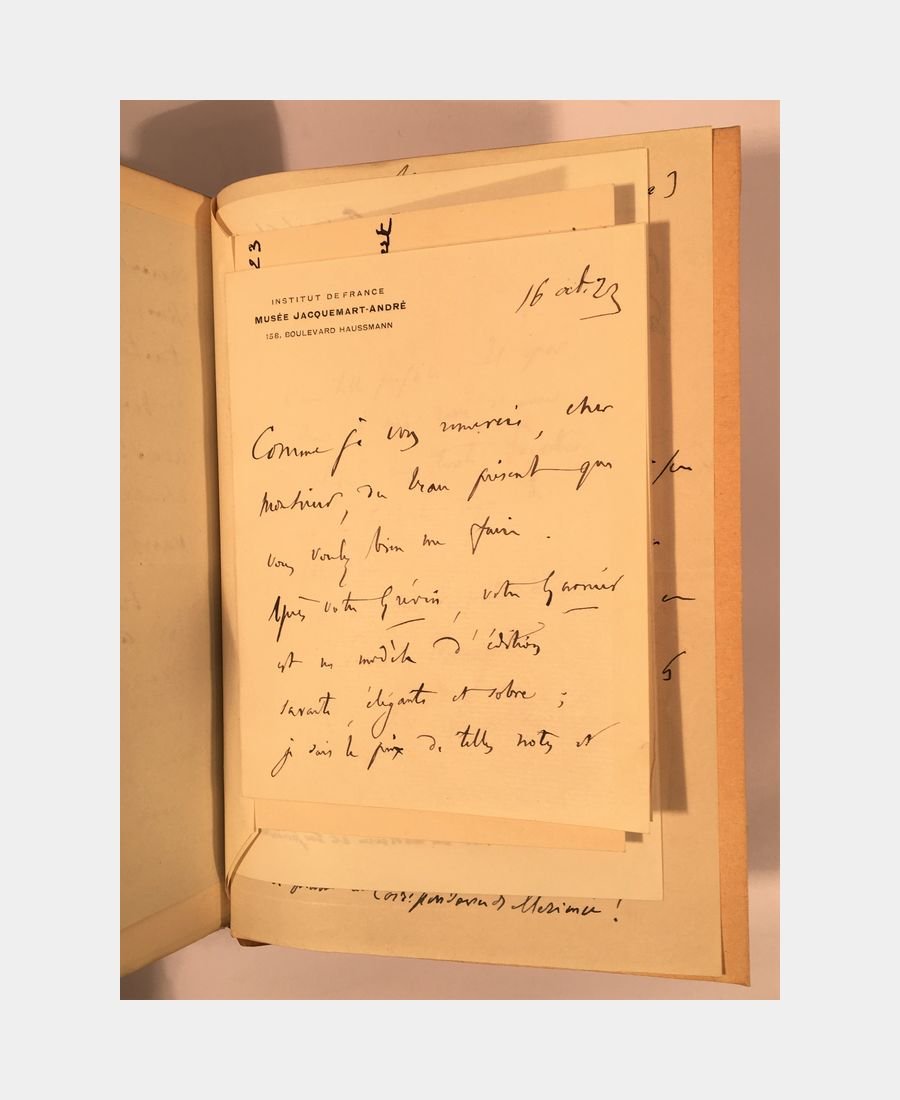 23
INSTITUT DE FRANCE
MUSÉE JACQUEMART-ANDRÉ
158, BOULEVARD HAUSSMANN
16 oct. 23
Comme je vous remercie, cher
Monsieur, du beau présent que
vous voulez bien me faire.
Après votre Grévin, votre Garnier
est un modèle d'édition
savante, élégante et sobre ;
je sais le prix de telles notes et
Correspondance de Mérimée !